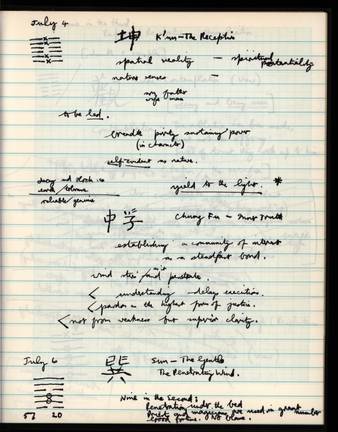 July 4
坤 K'un—The Receptive
spatial reality — spiritual potentiality
nature senses —
to be led.
breadth purity sustaining power
(in character)
self-evident as nature.
yield to the light. *
中孚 Chung Fu — Inner Truth
establishing a community of interest
as a steadfast bond.
wind stirs and penetrates.
understanding delay execution.
pardon is the highest form of justice.
not from weakness but superior clarity.
July 6
巽 Sun—The Gentle
The Penetrating Wind.
Nine in the Second:
Penetration under the bed
priests and magicians are used in great number
good fortune. No blame.
57 20